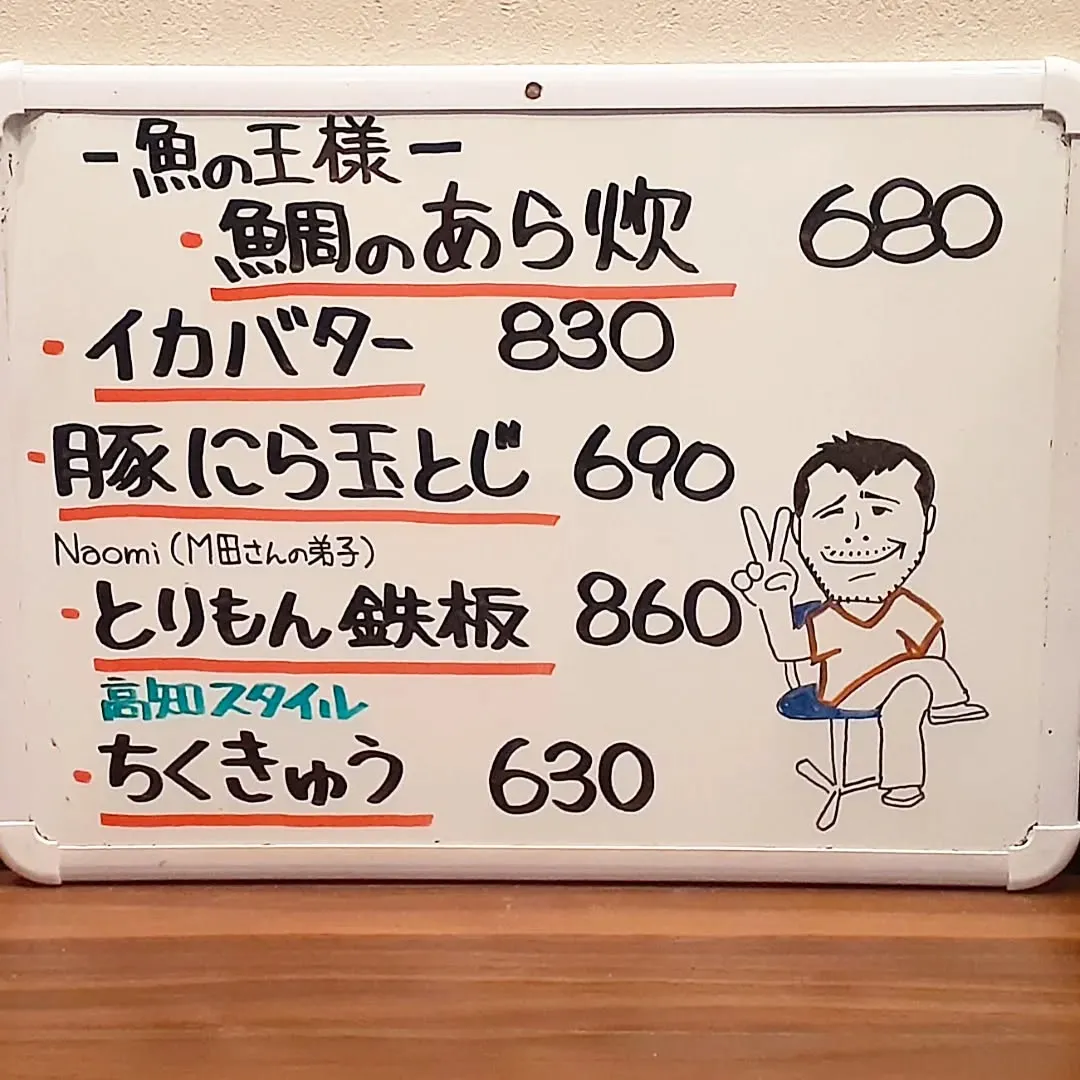 -魚の王様-
・鯛のあら炊 680
・イカバター 830
・豚にら玉とじ 690
Naomi(M田さんの弟子)
・とりもん鉄板 860
高知スタイル
・ちくきゅう 630